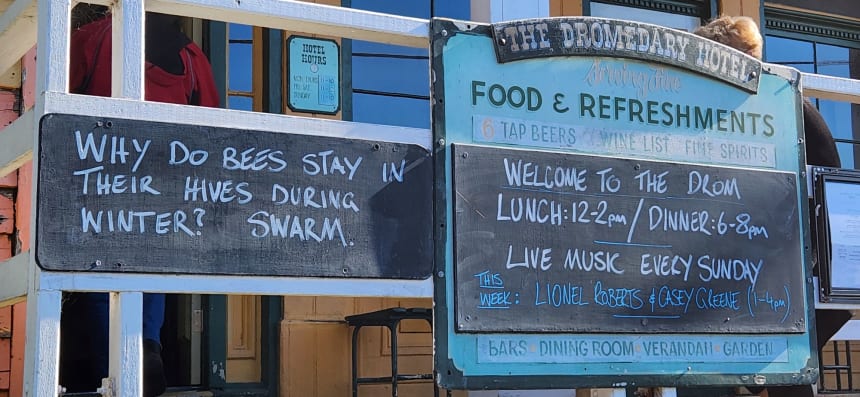 HOTEL
HOURS
WHY DO BEES STAY IN
THEIR HIVES DURING
WINTER? SWARM.
THE DROMEDARY HOTEL
FOOD & REFRESHMENTS
6 TAP BEERS WINE LIST FINE SPIRITS
WELCOME TO THE DROM
LUNCH: 12-2pm / DINNER: 6-8pm
LIVE MUSIC EVERY SUNDAY
THIS
WEEK: LIONEL ROBERTS & CASEY GREENE (1-4pm)
BARS · DINING ROOM · VERANDAH · GARDEN